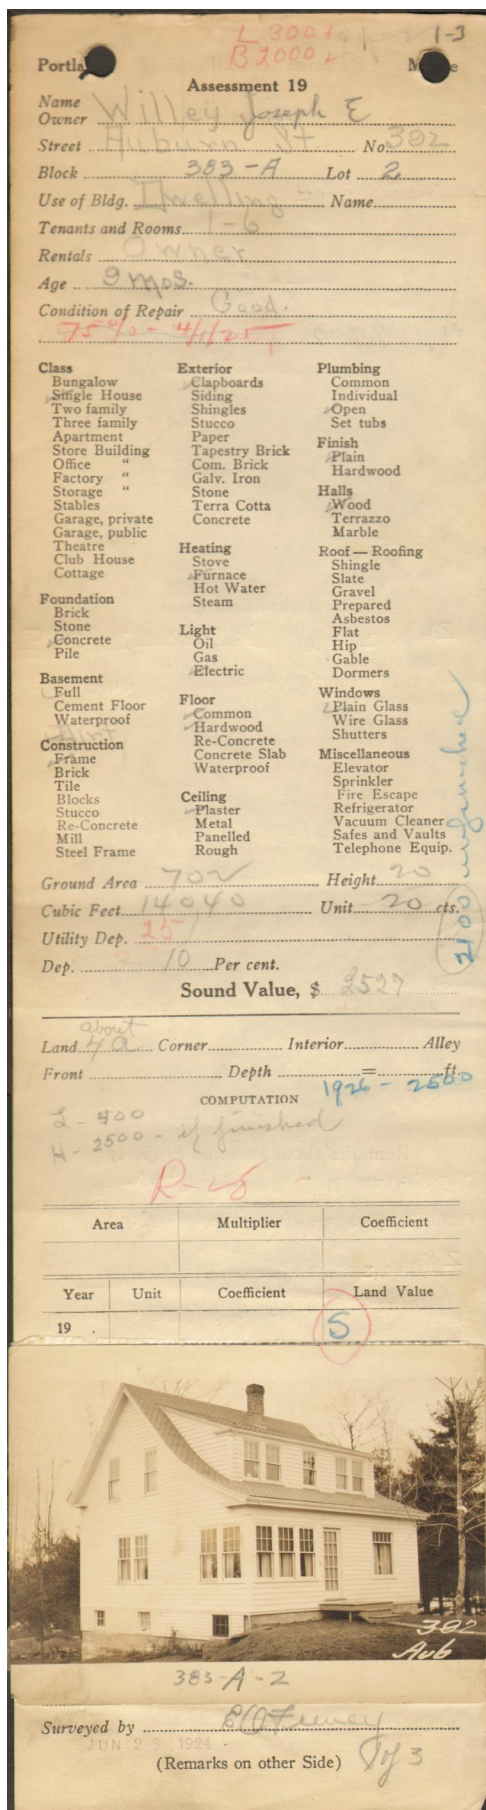 L 300+ 1-3
B 2000+
Assessment 19
Name
Owner Willey Joseph E
Street Auburn St No 392
Block 383-A Lot 2
Use of Bldg. Dwelling Name
Tenants and Rooms 1-6
Rentals Owner
Age 9 mos.
Condition of Repair Good.
75% - 4/1/25
Class
Bungalow
Single House
Two family
Three family
Apartment
Store Building
Office "
Factory "
Storage "
Stables
Garage, private
Garage, public
Theatre
Club House
Cottage
Foundation
Brick
Stone
Concrete
Pile
Basement
Full
Cement Floor
Waterproof
Dirt
Construction
Frame
Brick
Tile
Blocks
Stucco
Re-Concrete
Mill
Steel Frame
Exterior
Clapboards
Siding
Shingles
Stucco
Paper
Tapestry Brick
Com. Brick
Galv. Iron
Stone
Terra Cotta
Concrete
Heating
Stove
Furnace
Hot Water
Steam
Light
Oil
Gas
Electric
Floor
Common
Hardwood
Re-Concrete
Concrete Slab
Waterproof
Ceiling
Plaster
Metal
Panelled
Rough
Plumbing
Common
Individual
Open
Set tubs
Finish
Plain
Hardwood
Halls
Wood
Terrazzo
Marble
Roof — Roofing
Shingle
Slate
Gravel
Prepared
Asbestos
Flat
Hip
Gable
Dormers
Windows
Plain Glass
Wire Glass
Shutters
Miscellaneous
Elevator
Sprinkler
Fire Escape
Refrigerator
Vacuum Cleaner
Safes and Vaults
Telephone Equip.
2100 unfinished
Ground Area 702 Height 20
Cubic Feet 14040 Unit 20 cts.
Utility Dep. 25
Dep. 10 Per cent.
Sound Value, $ 2527
about
Land 4a Corner Interior Alley
Front Depth = ft.
COMPUTATION 1926 - 2500
L - 400
H - 2500 - if finished
Area Multiplier Coefficient
Year Unit Coefficient Land Value
19
5
392
Aub
383-A-2
Surveyed by E O Feeney
JUN 23 1924
(Remarks on other Side) 1 of 3